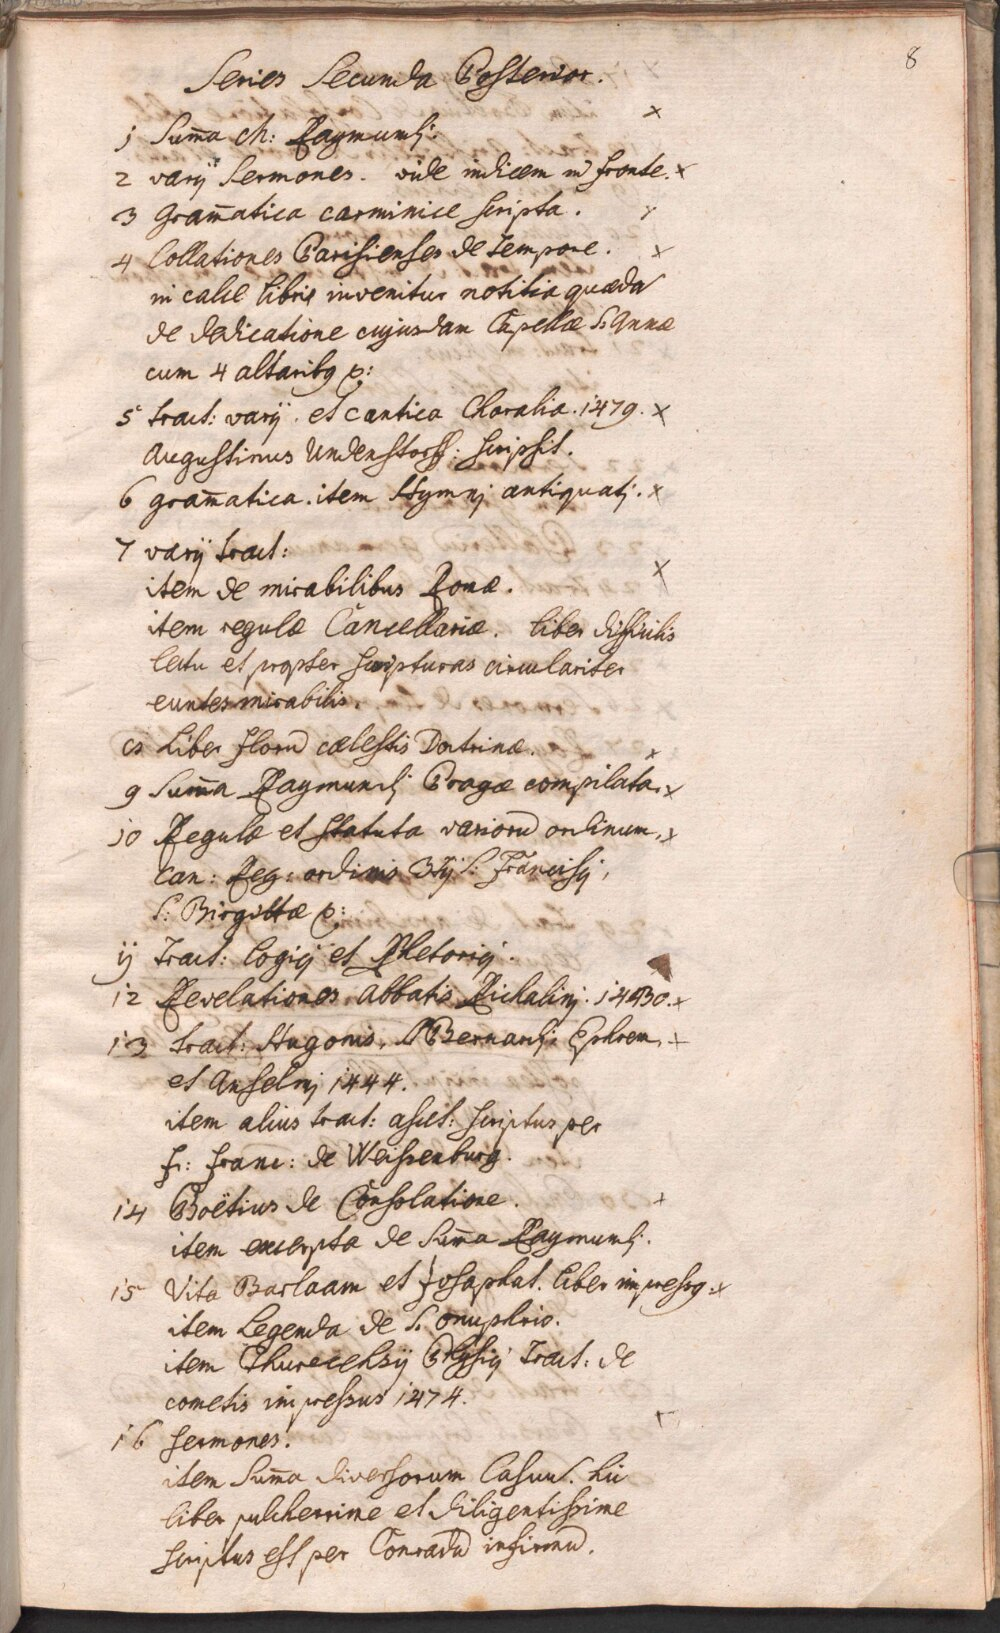 8
Series Secunda Posterior.
1 Sum̄a ch: Raymundj. x
2 varij Sermones. vide indicem in fronte. x
3 Gram̄atica carminice scripta. x
4 Collationes Parisienses de tempore. x
in calce libris invenitur notitia quædā
de dedicatione cujusdam Capellæ S. Annæ
cum 4 altaribq p:
5 tract: varij. et cantica Choralia. 1479. x
Augustinus Undenstorff: scripsit.
6 gram̄atica. item Hymnj antiquatj. x
7 varij tract: x
item de mirabilibus Romæ.
item regulæ Cancellariæ. liber difficilis
lectu et propter scripturas circulariter
euntes mirabilis.
8 Liber florū cælestis Doctrinæ. x
9 Sum̄a Raymundj Pragæ compilata. x
10 Regulæ et Statuta variorū ordinum, x
Can: Reg: ordinis 3tij S: Francisj,
S: Birgittæ p:
11 Tract: Logicj et Rhetoricj.
12 Revelationes Abbatis Richalinj. 1430. x
13 tract: Hugonis, Bernardj, Ephrem, x
et Anselmj 1444.
item alius tract: ascet: scriptus per
fr: franc: de Weissenburg.
14 Boëtius de Consolatione. x
item excerpta de Sum̄a Raymundj.
15 Vita Barlaam et Josaphat. liber impressq. x
item Legenda de S. Onuphrio.
item Thurecensij Physicj Tract: de
cometis impressus 1474.
16 Sermones. x
item Sum̄a diversorum Casuū. hic
liber pulcherrime et diligentissime
scriptus est per Conradū infirmū.